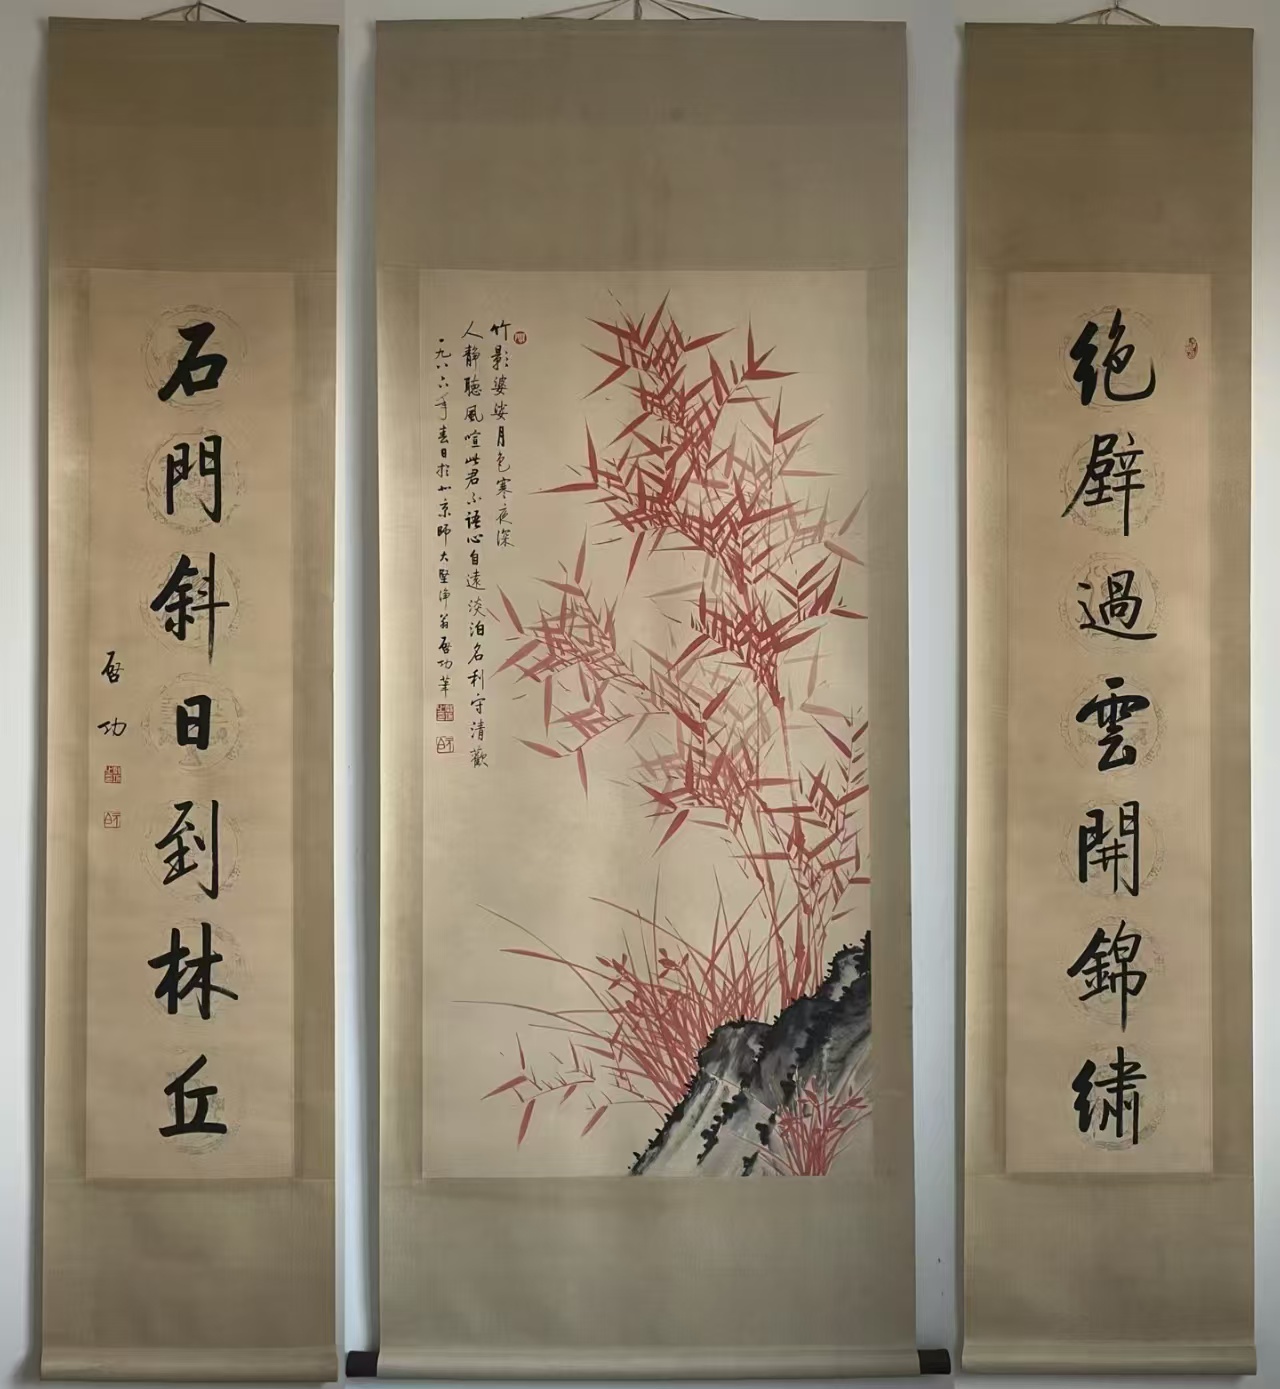 绝壁過雲開錦繡
竹影婆娑月色寒夜深
人靜聽風喧此君不語心自遠淡泊名利守清歡
一九八六年春日於北京師大堅淨翁啓功筆
石門斜日到林丘
啓功